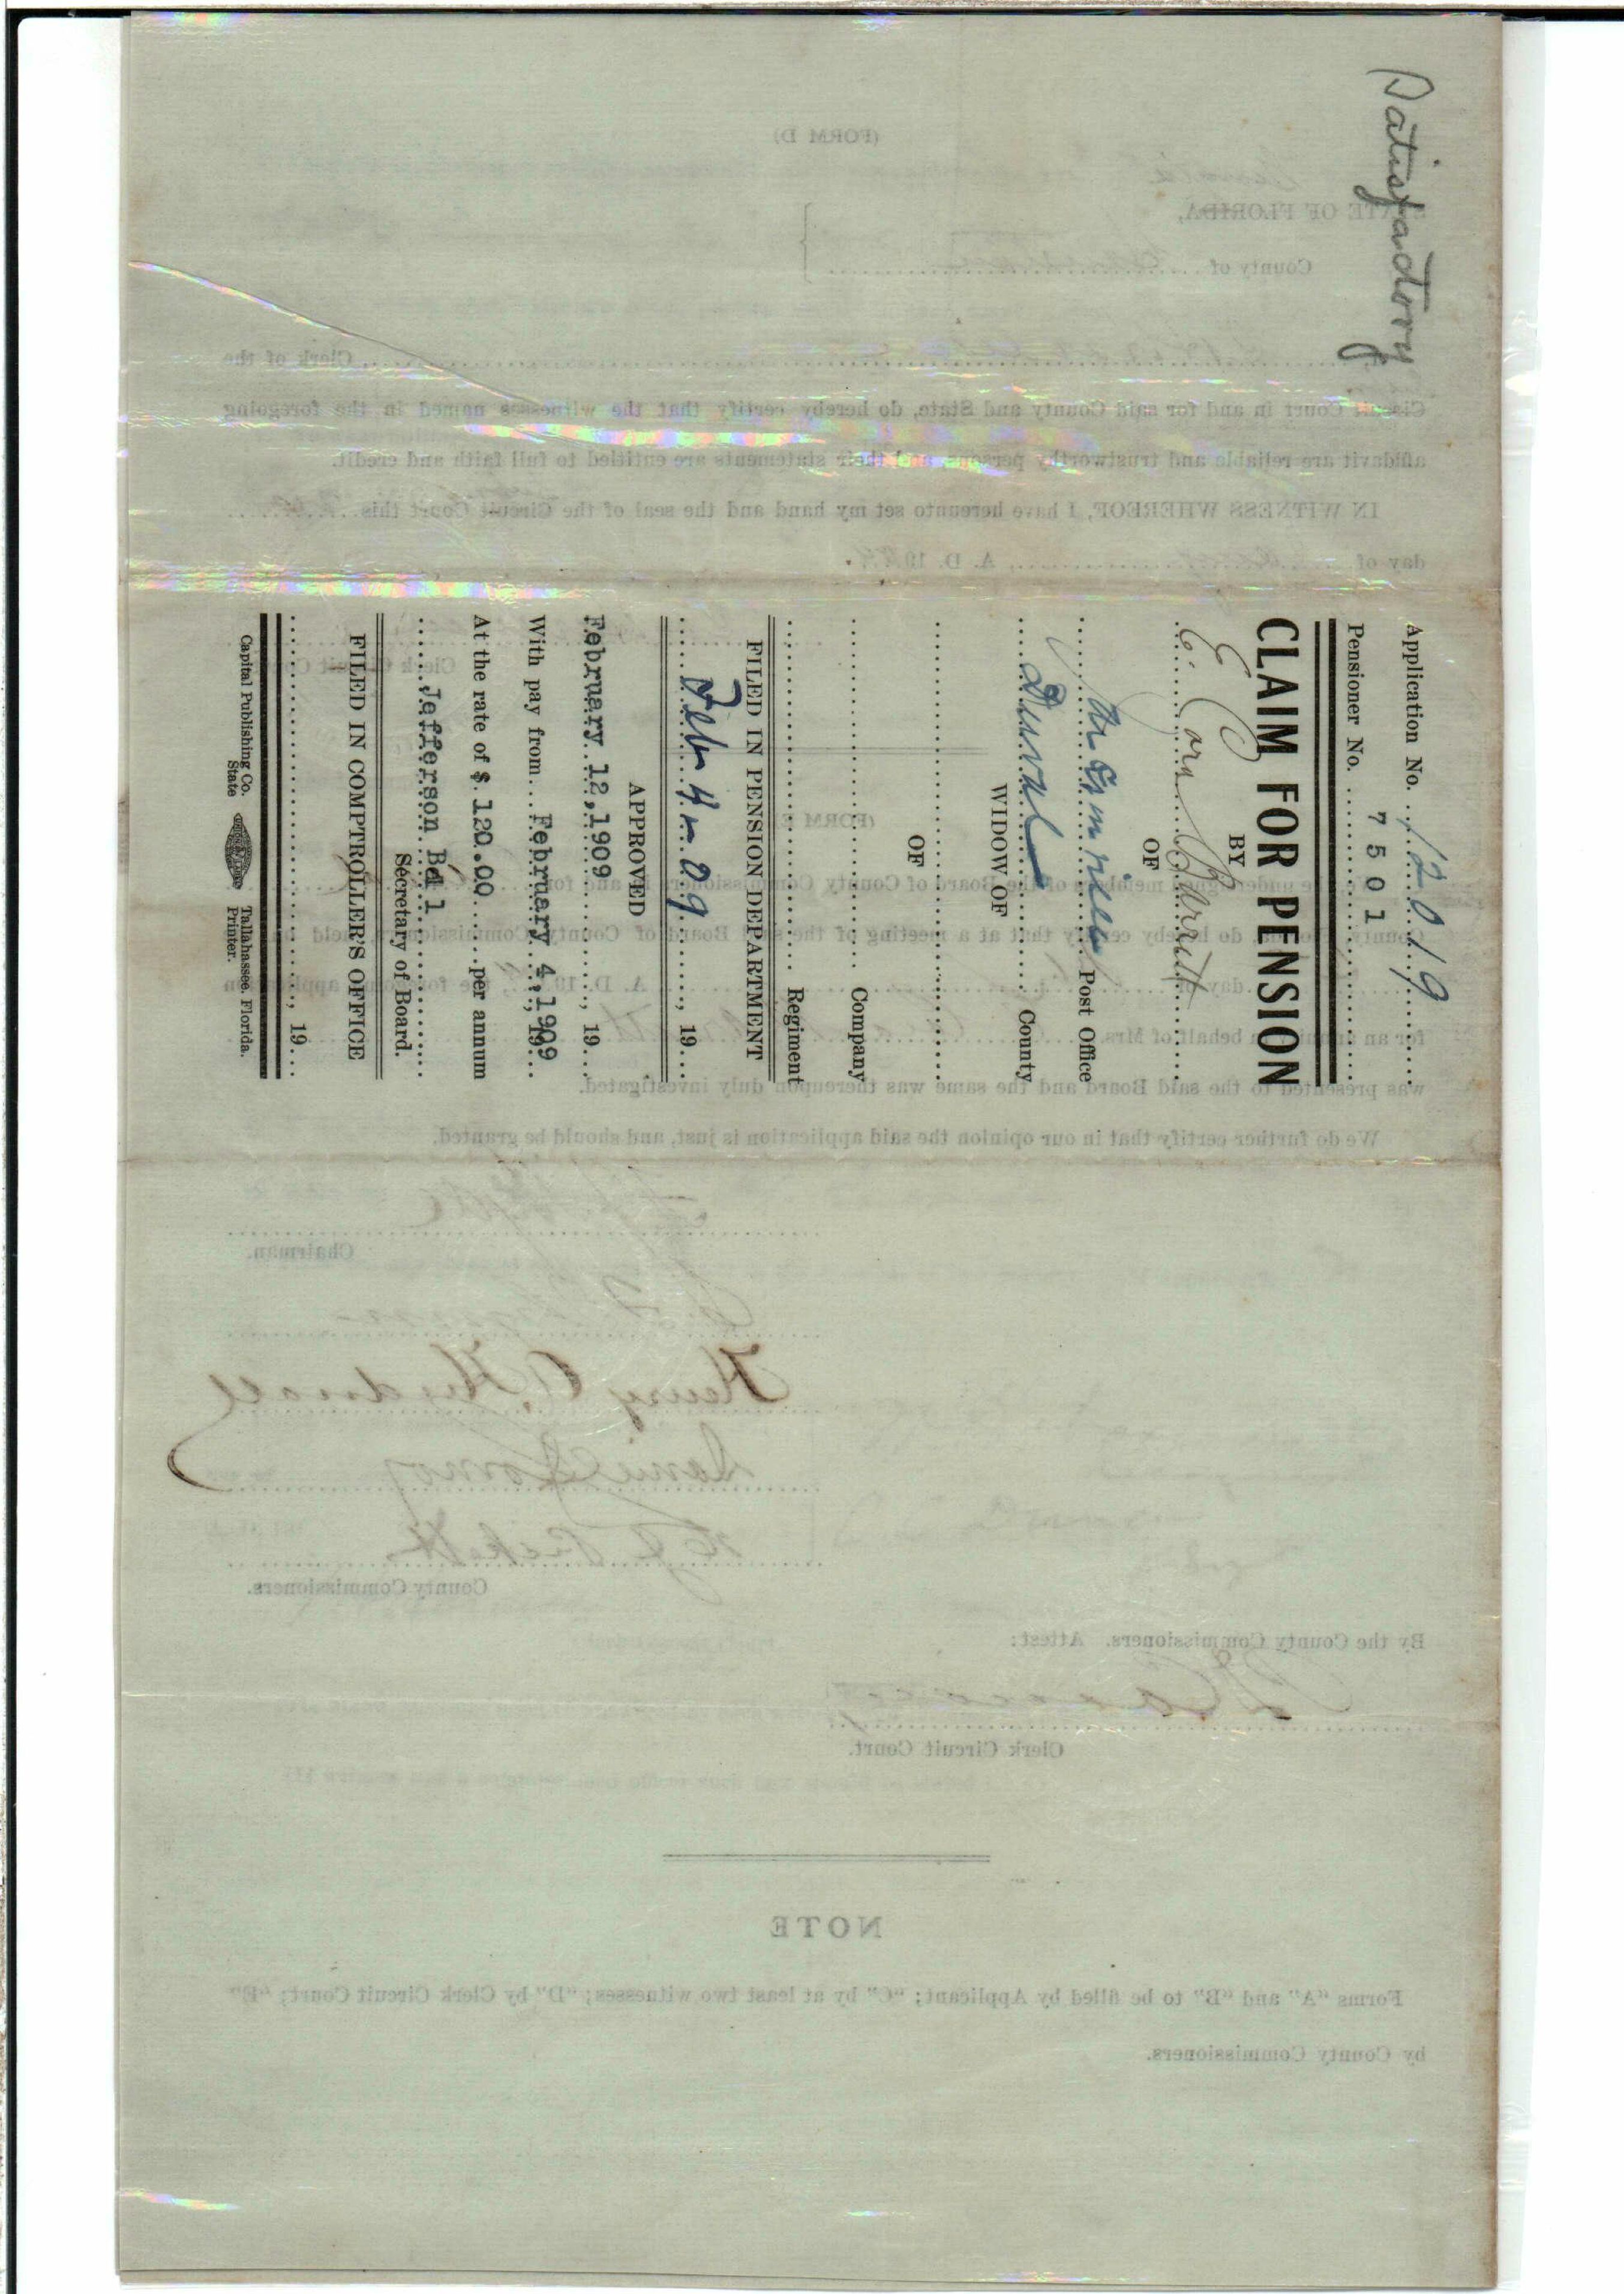 Satisfactory
Application No. 12019
Pensioner No. 7501
CLAIM FOR PENSION
BY
E. Cora Barrett
OF
Post Office
Duval County
WIDOW OF
OF
Company
Regiment
FILED IN PENSION DEPARTMENT
Feb 4-09, 19
APPROVED
February 12,1909, 19
With pay from February 4,1909, 19
At the rate of $ 120.00 per annum
Jefferson Bell
Secretary of Board.
FILED IN COMPTROLLER'S OFFICE
, 19
Capital Publishing Co. Tallahassee, Florida.
State Printer.
(FORM D)
STATE OF FLORIDA,
County of
I, Clerk of the
Circuit Court in and for said County and State, do hereby certify that the witnesses named in the foregoing
affidavit are reliable and trustworthy persons and their statements are entitled to full faith and credit.
IN WITNESS WHEREOF, I have hereunto set my hand and the seal of the Circuit Court this
day of A. D. 19
Clerk Circuit
(FORM E)
the undersigned members of the Board of County Commissioners in and for
County, do hereby certify that at a meeting of the said Board of County Commissioners, held
day of A. D. 19, the foregoing application
for an behalf of Mrs.
was presented to the said Board and the same was thereupon duly investigated.
We do further certify that in our opinion the said application is just, and should be granted.
Chairman.
Henry A. Hudnall
H J Pickett
County Commissioners.
By the County Commissioners. Attest:
Clerk Circuit Court.
NOTE
Forms "A" and "B" to be filled by Applicant; "C" by at least two witnesses; "D" by Clerk Circuit Court; "E"
by County Commissioners.